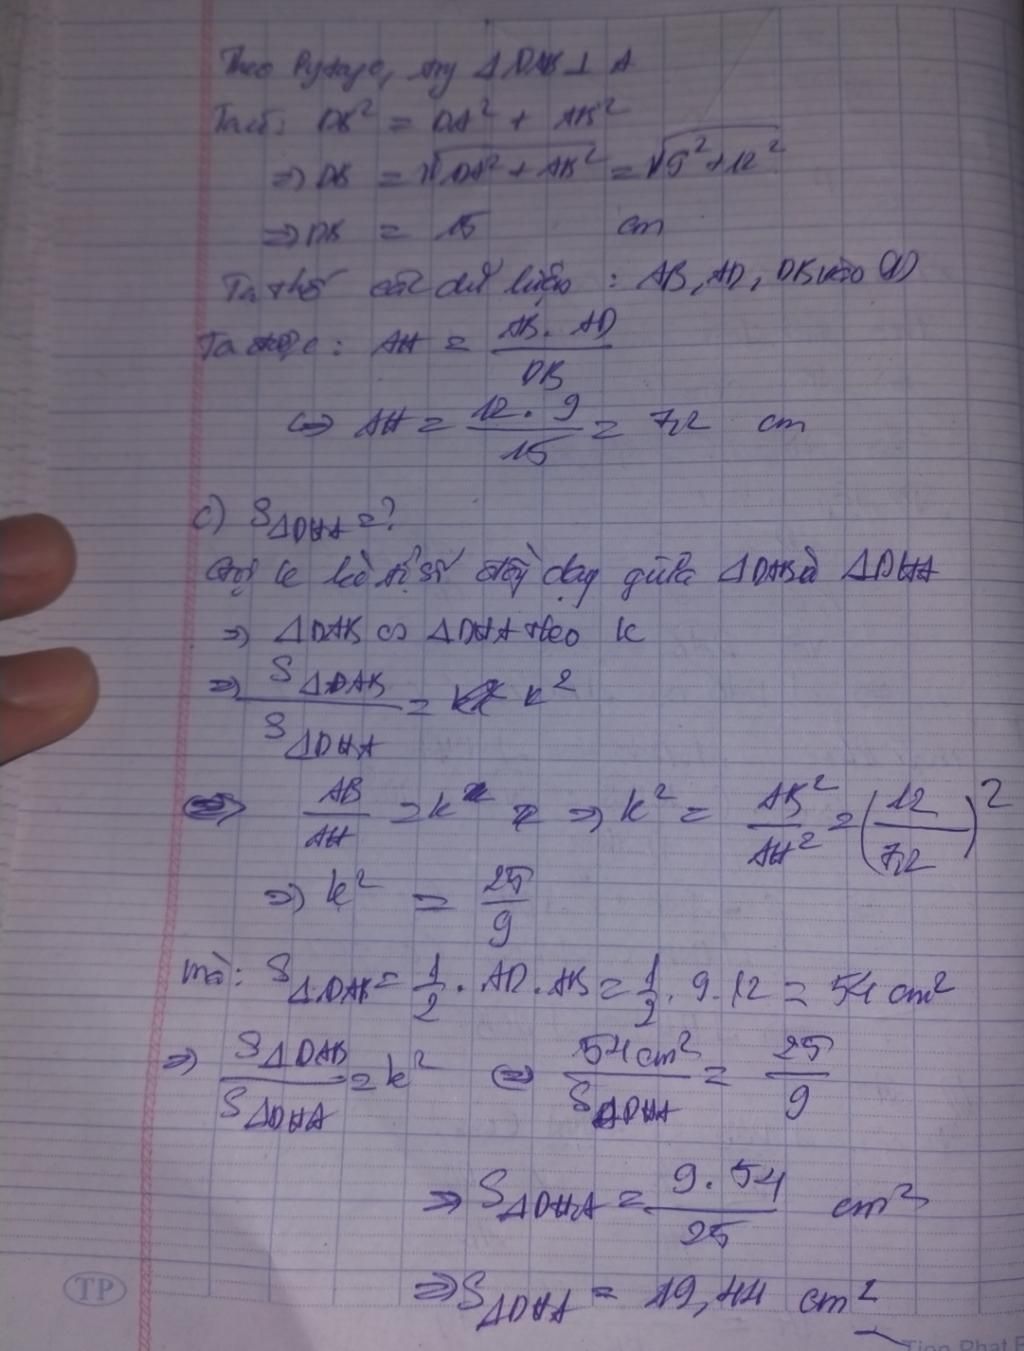 Theo Pytago, ΔDAB ⊥ A
Ta có: DB² = DA² + AB²
⇒ DB = √(DA² + AB²) = √(9² + 12²)
⇒ DB = 15 cm
Ta thế các dữ liệu : AB, AD, DB vào (1)
Ta được: AH = AB. AD / DB
⇔ AH = 12. 9 / 15 = 7,2 cm
c) S ΔDHA = ?
Gọi k là tỉ số đồng dạng giữa ΔDAB và ΔDHA
⇒ ΔDAB ∽ ΔDHA theo k
⇒ S ΔDAB / S ΔDHA = k²
AB / AH = k ⇒ k² = AB² / AH² = (12 / 7,2)²
⇒ k² = 25 / 9
mà: S ΔDAB = 1/2 . AD . AB = 1/2 . 9 . 12 = 54 cm²
⇒ S ΔDAB / S ΔDHA = k² ⇔ 54 cm² / S ΔDHA = 25 / 9
⇒ S ΔDHA = 9 . 54 / 25 cm²
⇒ S ΔDHA = 19,44 cm²
TP